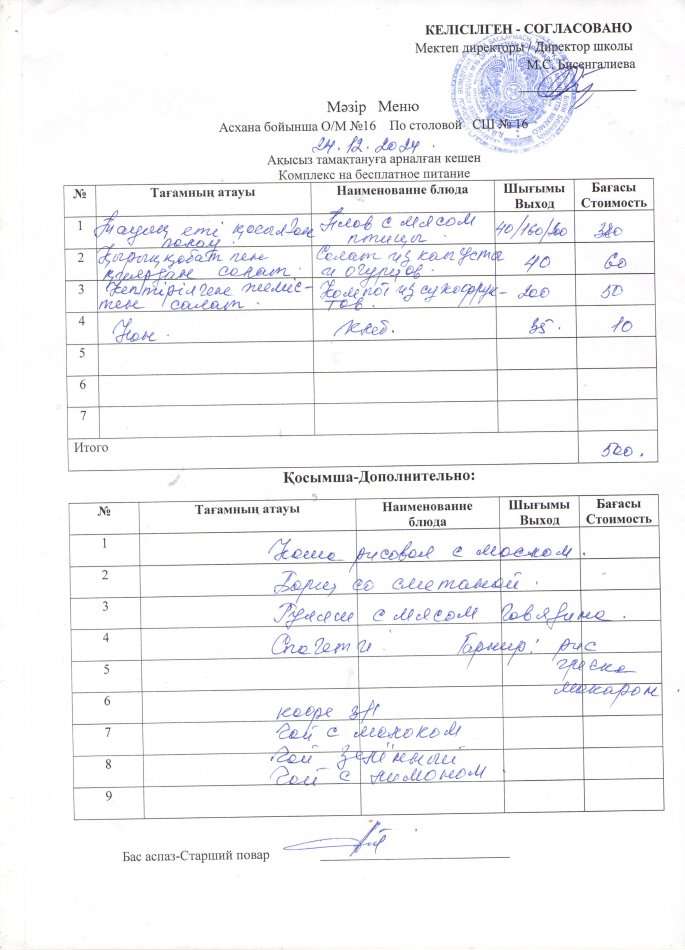 КЕЛІСІЛГЕН - СОГЛАСОВАНО
Мектеп директоры / Директор школы
М.С. Бисенгалиева
Мәзір Меню
Асхана бойынша О/М №16 По столовой СШ № 16
24.12.2024.
Ақысыз тамақтануға арналған кешен
Комплекс на бесплатное питание
№ Тағамның атауы Наименованне блюда Шығымы Выход Бағасы Стоимость
1 Тауық еті қосылған палау. Плов с мясом птицы. 40/160/200 380
2 Қырыққабат пен қиярдан салат. Салат из капусты и огурцов. 40 60
3 Кептірілген жеміс-тен салат. Компот из сухофрук-тов. 200 50
4 Нан. Хлеб. 35. 10
5
6
7
Итого 500.
Қосымша-Дополнительно:
№ Тағамның атауы Наименованне блюда Шығымы Выход Бағасы Стоимость
1 Каша рисовая с маслом.
2 Борщ со сметаной.
3 Гуляш с мясом говядина.
4 Спагетти Гарнир: рис
5 гречка
макарон
6 кофе 3/1
7 Чай с молоком
8 Чай зелённый
Чай с лимоном
9
Бас аспаз-Старший повар